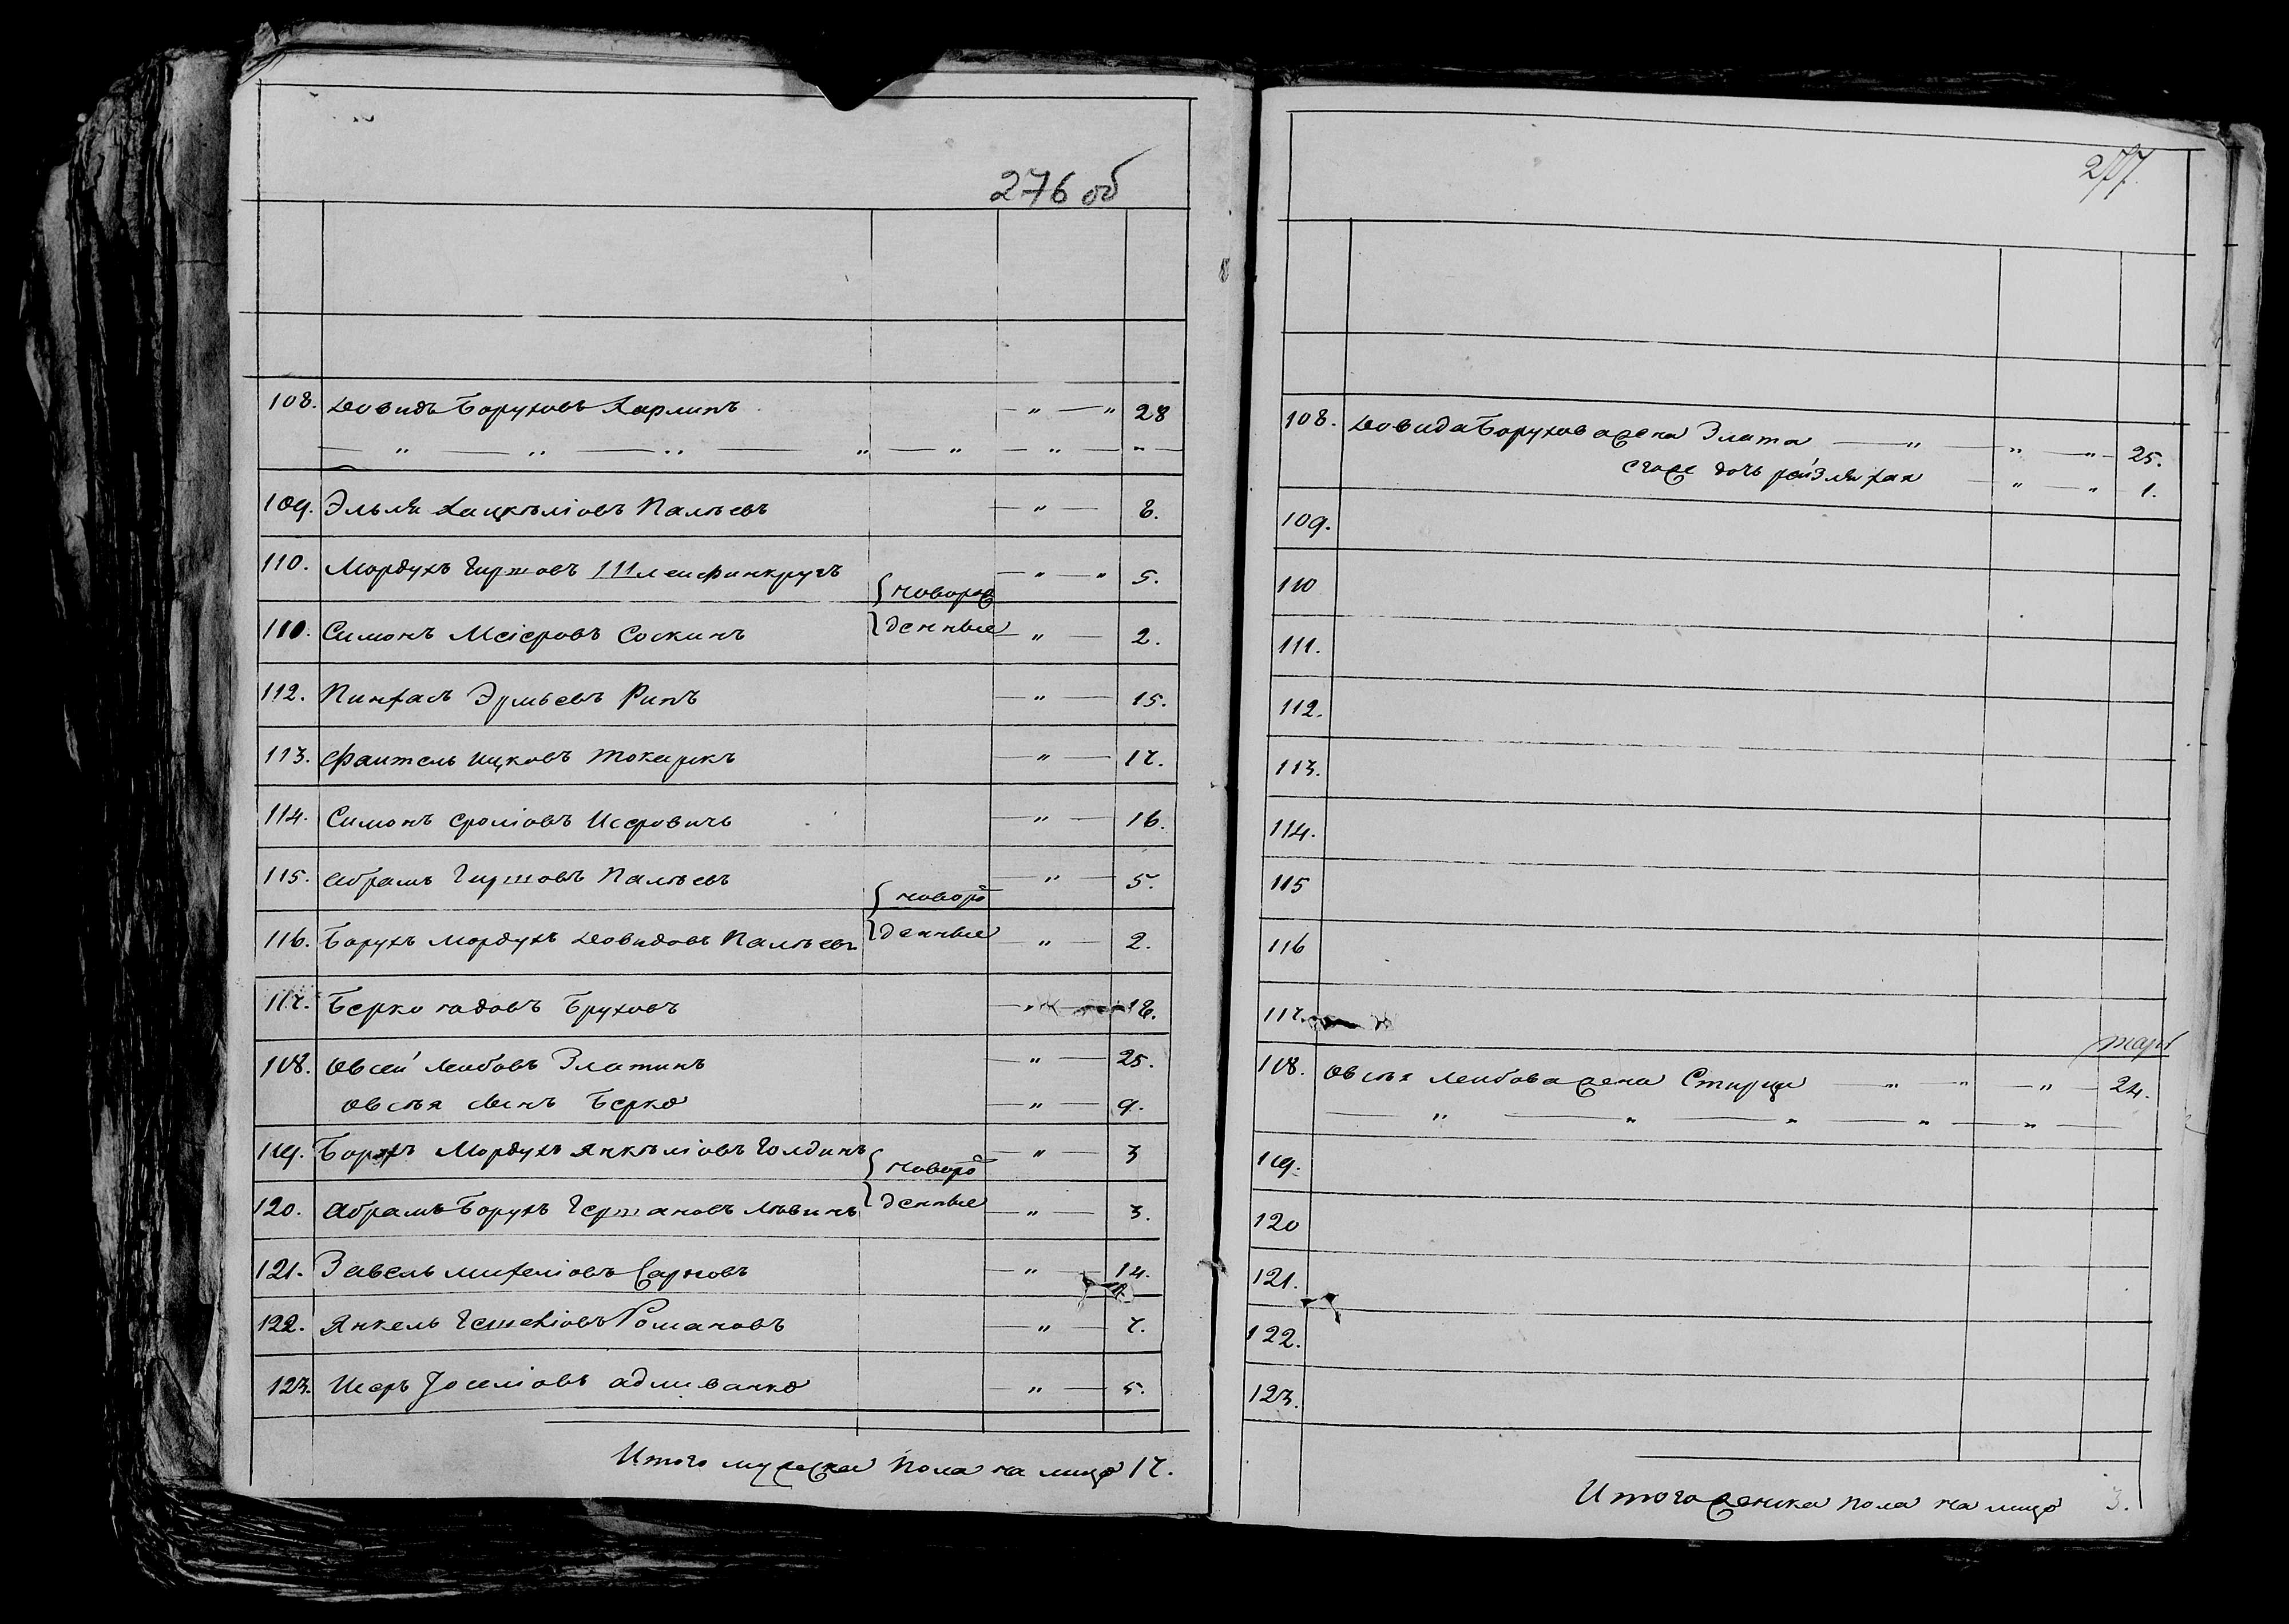 276 об
108. Довидъ Боруховъ Карлинъ — " — " 28
— " — " — " — " — " — " — " —
109. Эльля Хацкѣліовъ Палѣевъ — " — 8.
110. Мордухъ Гиршовъ Шлейфинкругъ — " — " 5.
{ новоро
110. Симонъ Меіеровъ Соскинъ } жденные — " — 2.
112. Пинхасъ Эрльевъ Ринъ — " — 15.
113. Файтель Ицковъ Токарикъ — " — 17.
114. Симонъ Сроліовъ Исеровичъ — " — 16.
115. Абрамъ Гиршовъ Палѣевъ — " — 5.
{ новоро
116. Борухъ Мордухъ Довидовъ Палѣевъ } жденные — " — 2.
117. Берко Гадовъ Бруховъ — " — 18.
118. Овсей Лейбовъ Златинъ — " — 25.
Овсѣя сынъ Берко — " — 9.
119. Борухъ Мордухъ Янкѣліовъ Голдинъ — " — 3
{ новоро
120. Абрамъ Борухъ Германовъ Лѣвинъ } жденные — " — 3.
121. Завель Михеліовъ Сарновъ — " — 14.
122. Янкель Романовъ — " — 7.
123. Исеръ Іоселіовъ Адливанко — " — 5.
Итого мужеска пола на лицо 17.
277.
108. Довида Борухова жена Злата — " — " — " — 25.
его же дочь Рейзля Хая — " — " 1.
109.
110
111.
112.
113.
114.
115
116
117.
118. Овсѣя Лейбова жена Стирце — " — " — " — 24.
— " — " — " — " — " —
119.
120
121.
122.
123.
Итого женска пола на лицо 3.